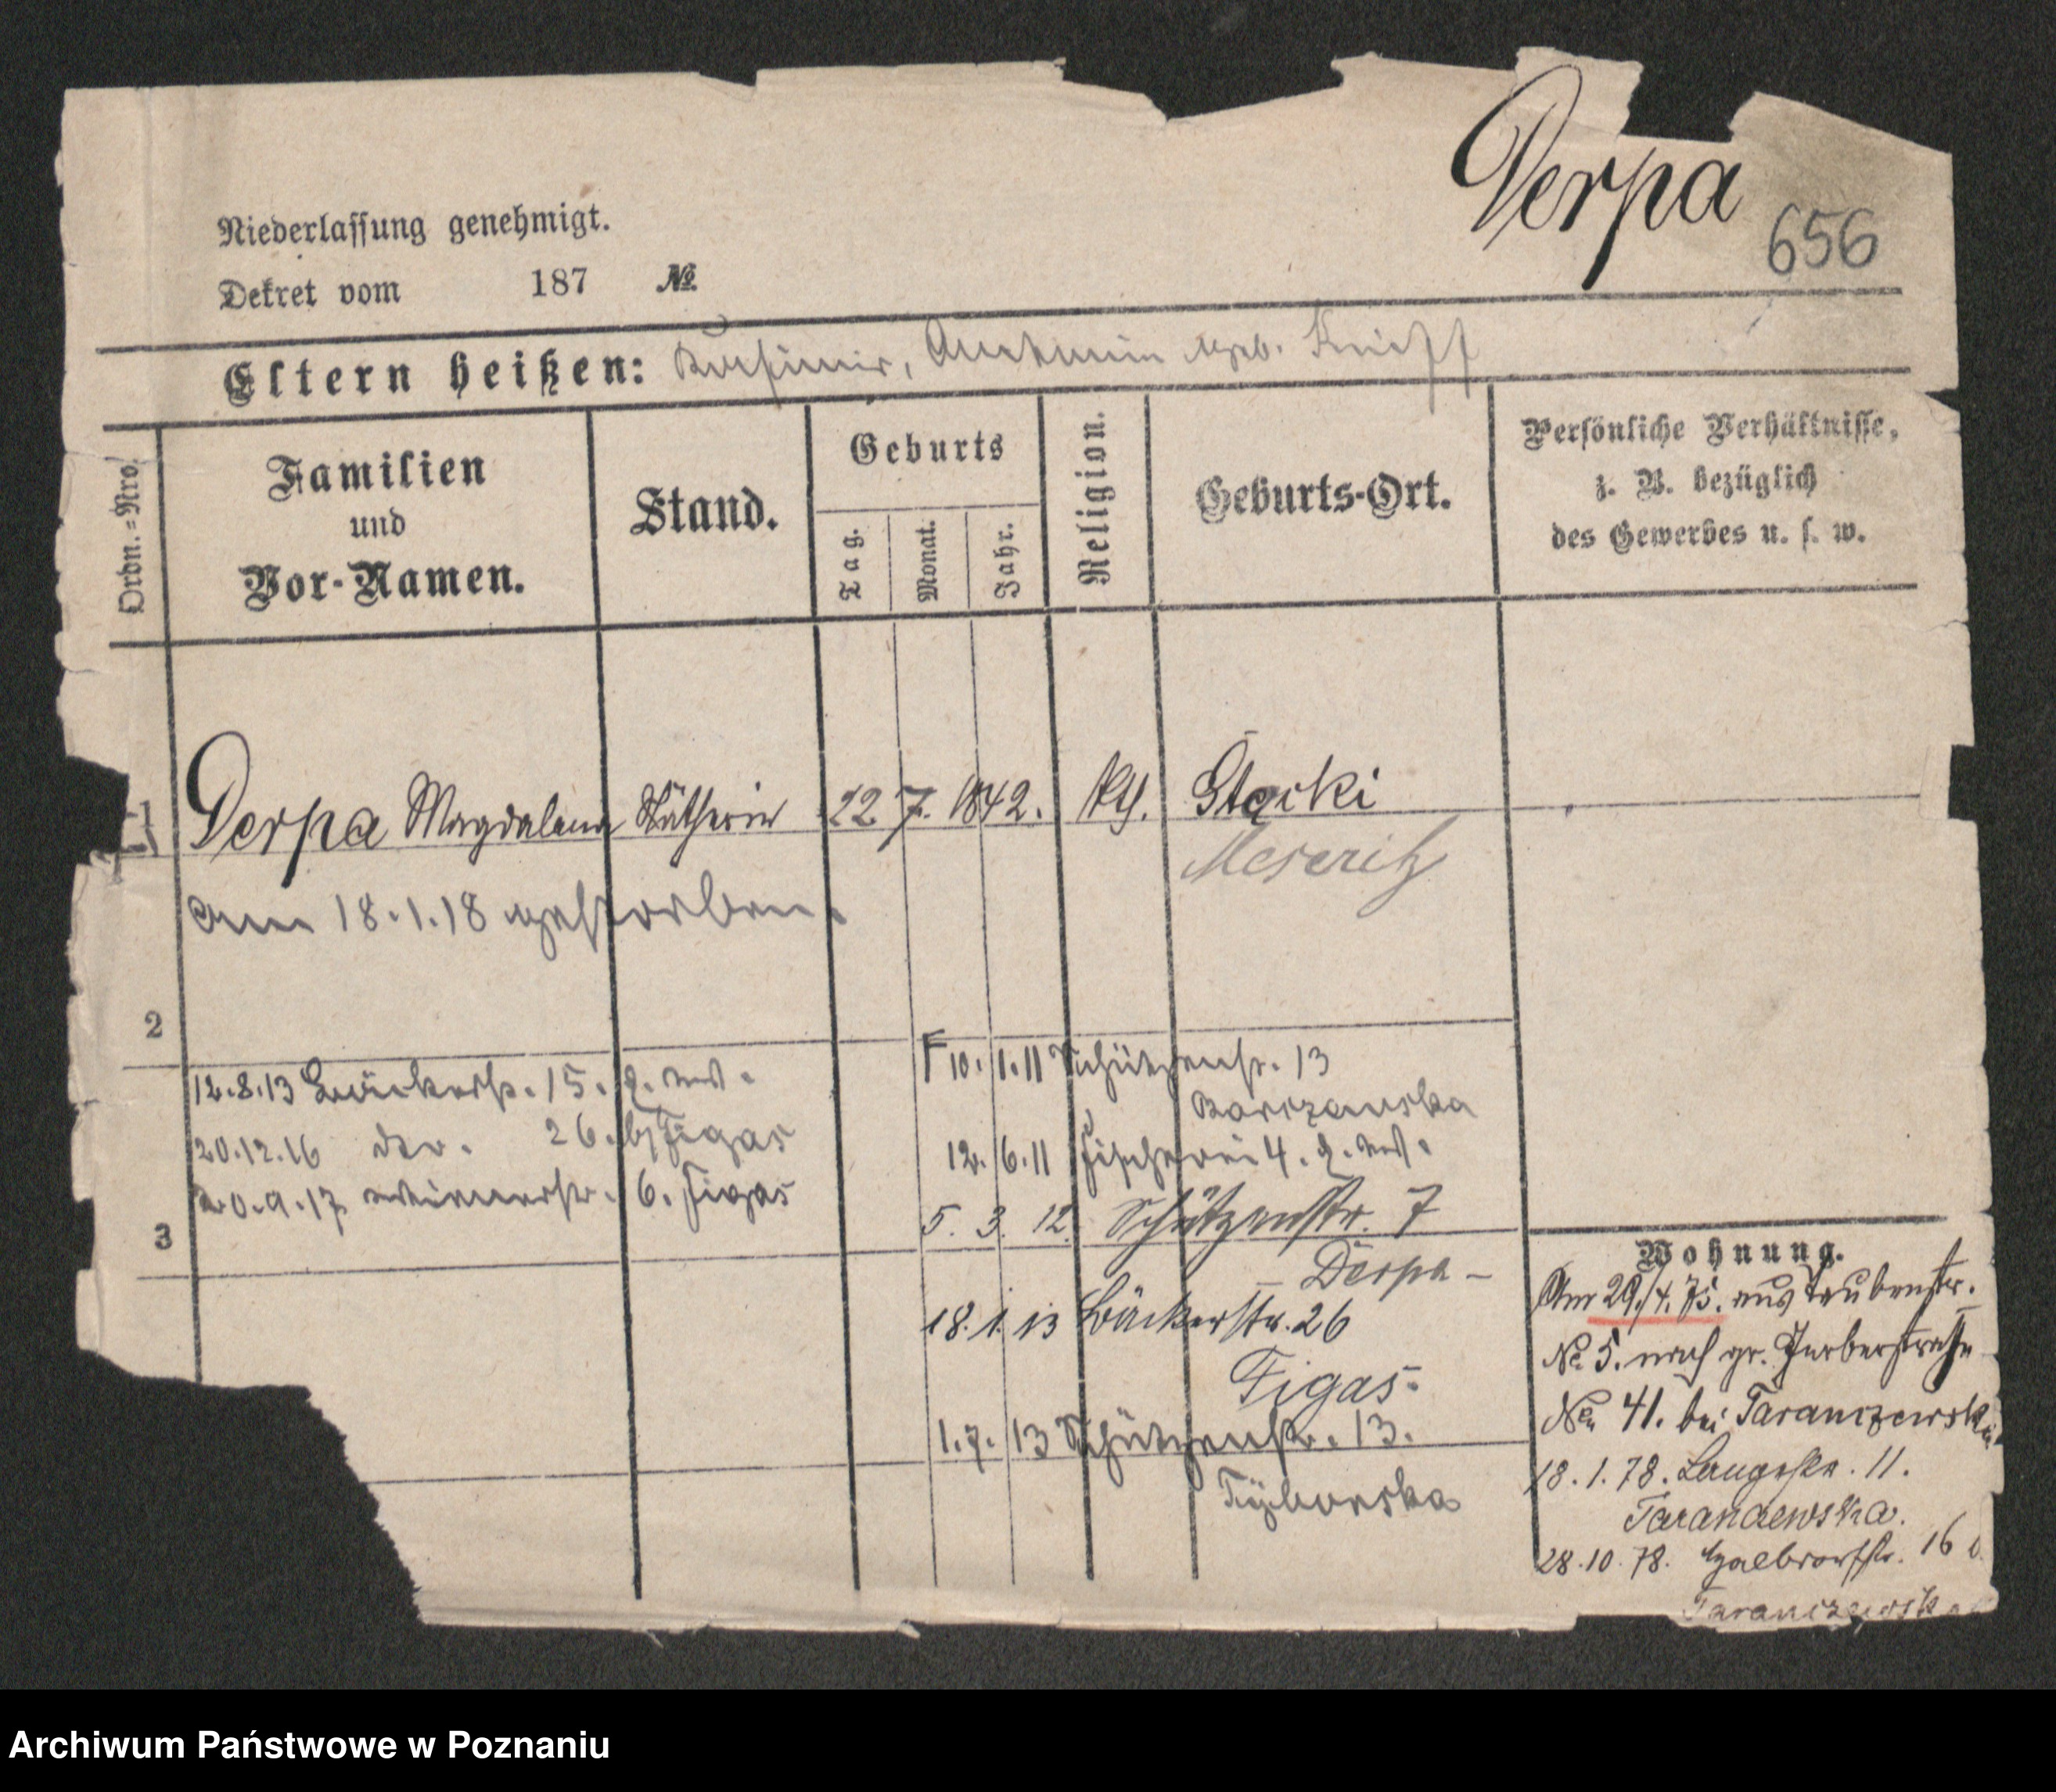 Derpa
656
Niederlassung genehmigt.
Dekret vom 187 №
Eltern heißen: Kasimir, geb.
Ordn.=Nro.
Familien
und
Vor-Namen.
Stand.
Geburts
Tag.
Monat.
Jahr.
Religion.
Geburts-Ort.
Persönliche Verhältnisse,
z. B. bezüglich
des Gewerbes u. s. w.
1 Derpa Magdalena Nätherin 22. 7. 1842. kth.
Meseritz
am 18.1.18 gestorben.
2
12.8.13 Bäckerstr. 15.
20.12.16 26. Figas
20.9.17 6. Figas
3
10.1.11 Schützenstr. 13
12.6.11 Fischerei 4.
5. 3. 12. Schützenstr. 7
– Derpa –
18.1.13 Bäckerstr. 26
Figas
1.7.13 Schützenstr. 13.
Wohnung.
Am 29./4. 75. aus Taubenstr.
№ 5. nach gr. Gerberstraße
No 41. bei Taranczewska
18.1.78. Langestr. 11.
Taranczewska.
28.10.78. Halbdorfstr. 16
Taranczewska
Archiwum Państwowe w Poznaniu